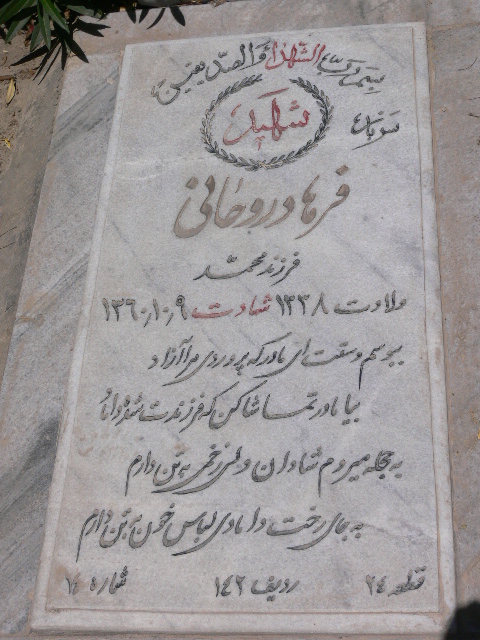 بسم رب الشهدا و الصدیقین
سرباز
شهید
فرهاد روحانی
فرزند محمد
ولادت ۱۳۳۸ شهادت ۱۳۶۰٫۱۰٫۹
ببوسم دستت ای مادر که پروردی مرا آزاد
بیا مادر تماشا کن که فرزندت شده داماد
به حجله میروم شادان ولی زخمی به تن دارم
به جای رخت دامادی لباس خون به تن دارم
قطعه ۲۴ ردیف ۱۴۲ شماره ۱۰